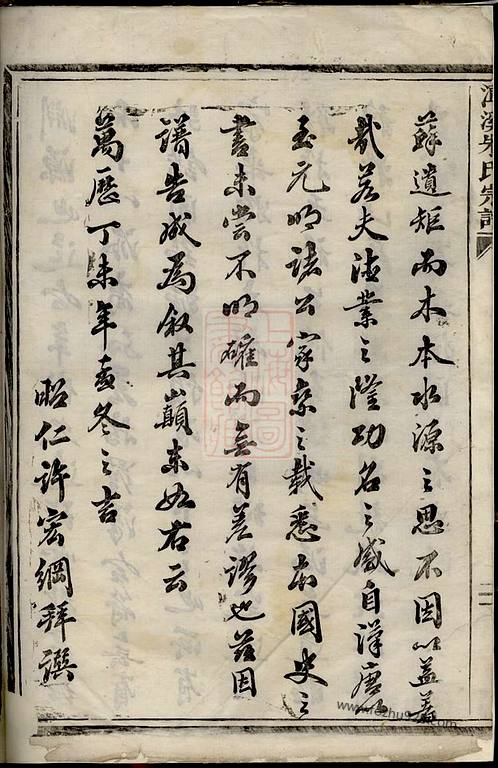 蘇遺矩而木本水源之思不因以益著
哉若夫德業之隆功名之盛自漢唐以
至元明諸公家乘之載悉出國史之
書未嘗不明確而無有差謬也茲因
譜告成為叙其巔末如右云
萬歷丁未年孟冬之吉
昭仁許宏綱拜譔
溪朱氏宗譜
二
上海圖書館藏